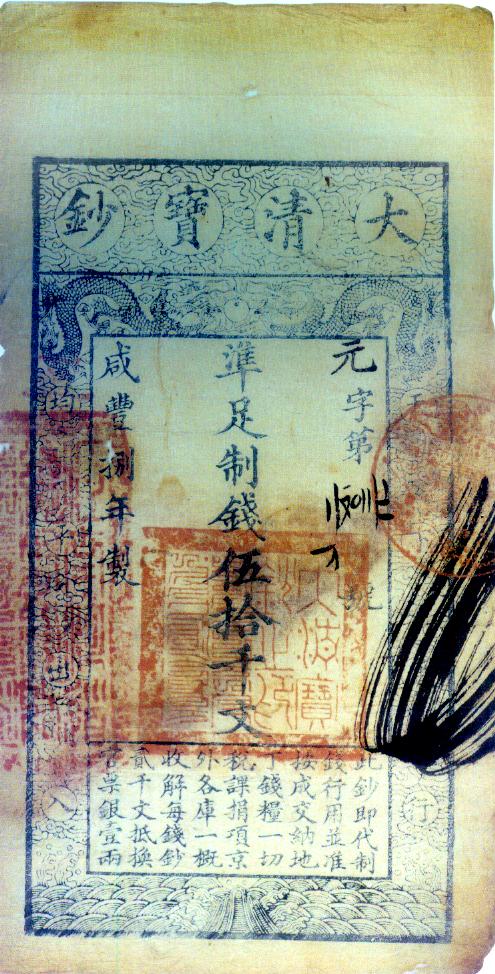 大清寶鈔
元字第號
準足制錢伍拾千文
咸豐捌年製
此鈔即代制
錢行用並准
按成交納地
丁錢糧一切
稅課捐項京
外各庫一概
收解每錢鈔
貳千文抵換
官票銀壹兩
行
均平出入